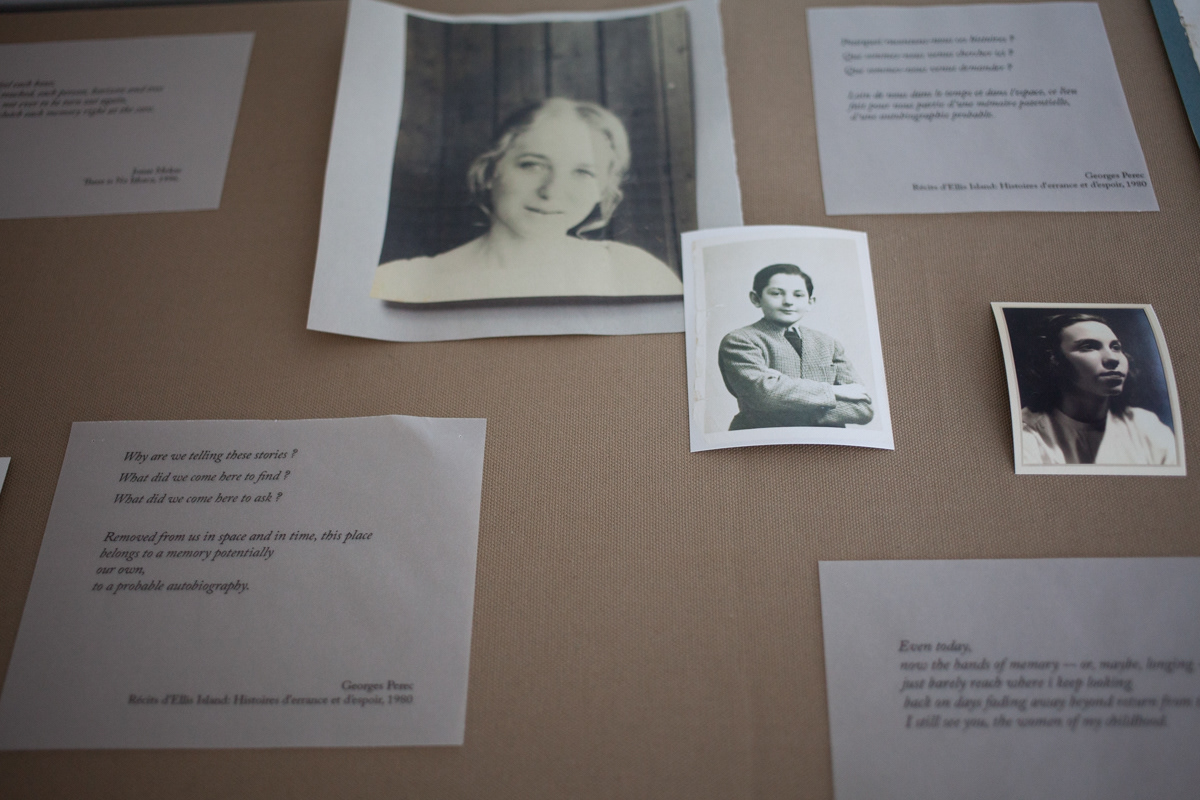 each hour,
touched, each person, horizon and tree
not ever to be torn out again,
each memory right at the core.
Jonas Mekas
There is No Ithaca, 1996
Pourquoi racontons-nous ces histoires ?
Que sommes-nous venus chercher ici ?
Que sommes-nous venus demander ?
Loin de nous dans le temps et dans l'espace, ce lieu
fait pour nous partie d'une mémoire potentielle,
d'une autobiographie probable.
Georges Perec
Récits d'Ellis Island: Histoires d'errance et d'espoir, 1980
Why are we telling these stories ?
What did we come here to find ?
What did we come here to ask ?
Removed from us in space and in time, this place
belongs to a memory potentially
our own,
to a probable autobiography.
Georges Perec
Récits d'Ellis Island: Histoires d'errance et d'espoir, 1980
Even today,
now the hands of memory — or, maybe, longing
just barely reach where i keep looking
back on days fading away beyond return from
I still see you, the women of my childhood.